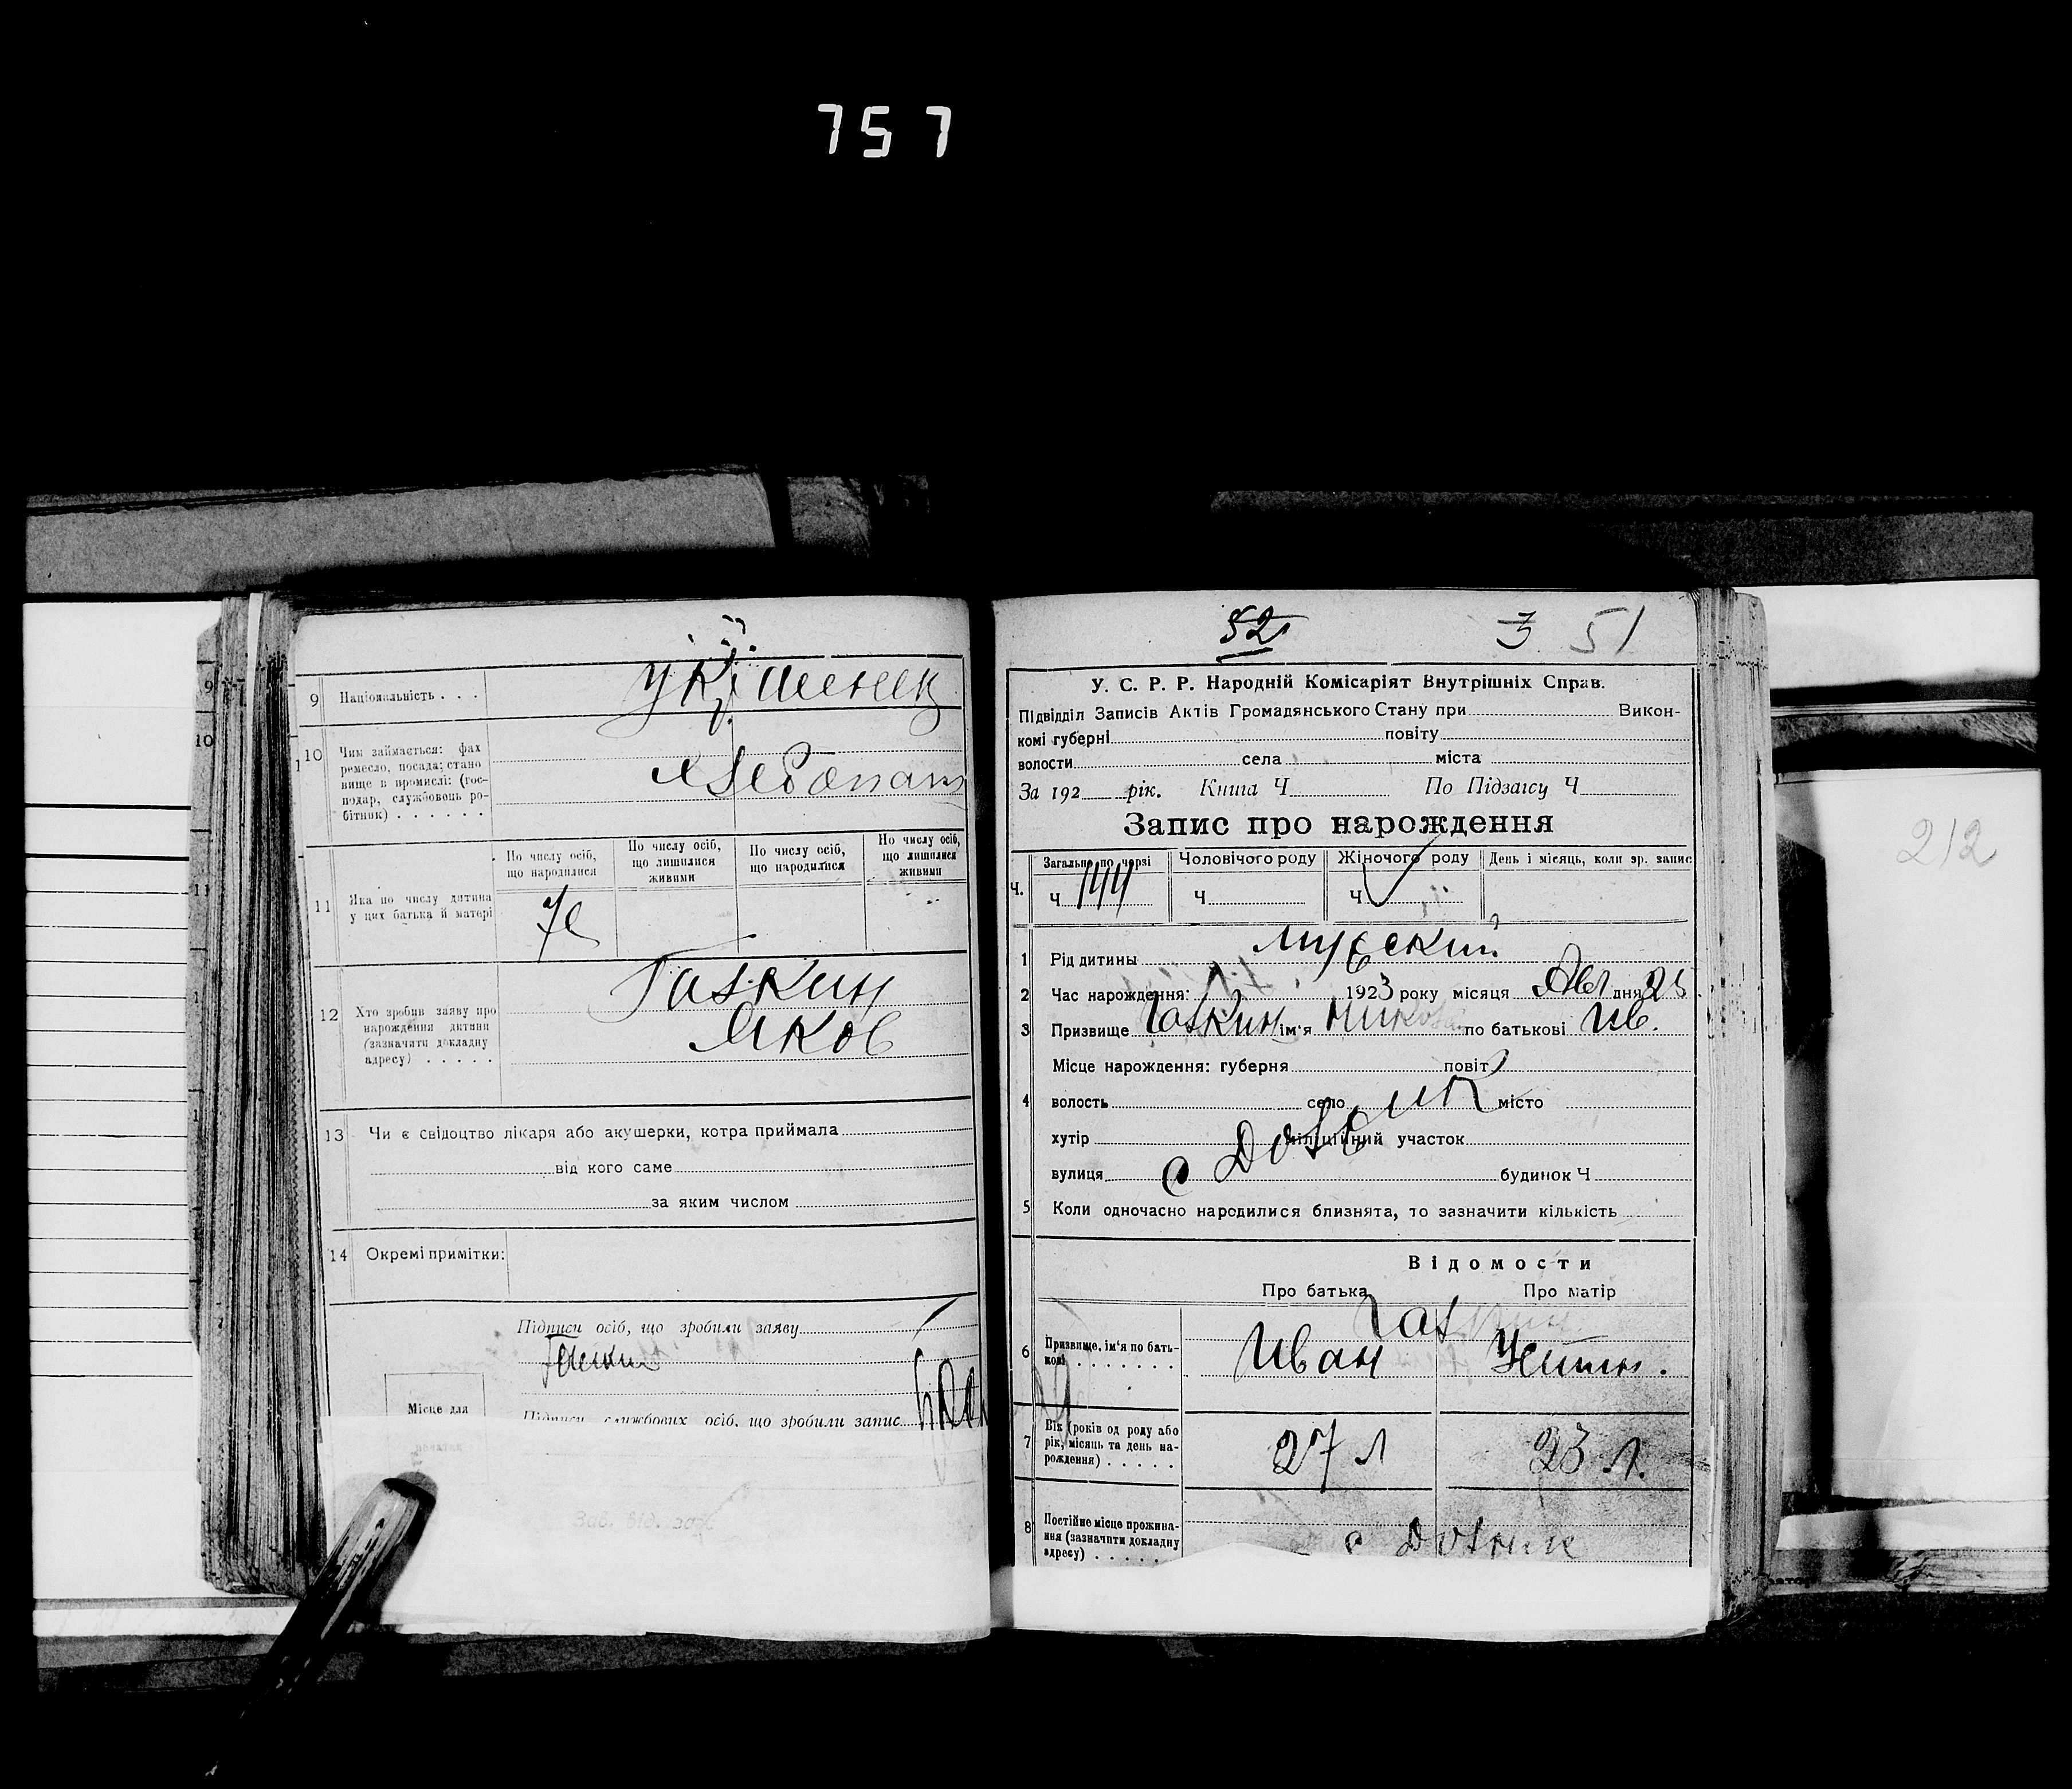 757
9 Національність . . .
10 Чим займається: фах
ремесло, посада; стано
вище в промислі: (гос-
подар, службовець ро-
бітник) . . . . . .
Хлебопаш
11 Яка по числу дитина
у цих батька й матері
По числу осіб,
що народилися
По числу осіб,
що лишилися
живими
По числу осіб,
що народилися
По числу осіб,
що лишилися
живими
12 Хто зробив заяву про
нарождення дитини
(зазначити докладну
адресу) . . . . .
Яков
13 Чи є свідоцтво лікаря або акушерки, котра приймала
від кого саме
за яким числом
14 Окремі примітки:
Підписи осіб, що зробили заяву
Місце для
Підписи службових осіб, що зробили запис
52 3 51
У. С. Р. Р. Народній Комісаріят Внутрішніх Справ.
Підвідділ Записів Актів Громадянського Стану при Викон-
комі губерні повіту
волости села міста
За 192 рік. Книга Ч По Підзагсу Ч
Запис про нарождення
Ч. Загально по черзі Чоловічого роду Жіночого роду День і місяць, коли зр. запис
Ч 144 Ч Ч
1 Рід дитины мужский
2 Час нарождення: 1923 року місяця Авг дня 25
3 Призвище ім'я по батькові Ив.
Місце нарождення: губерня повіт
4 волость село місто
хутір міліційний участок
вулиця будинок Ч
5 Коли одночасно народилися близнята, то зазначити кількість
Відомости
Про батька Про матір
6 Призвище, ім'я по бать-
кові . . . . . . .
Иван
7 Вік (років од роду або
рік, місяць та день на-
рождення) . . . . .
27 л 23 л.
8 Постійне місце прожива-
ння (зазначити докладну
адресу) . . . . .
212